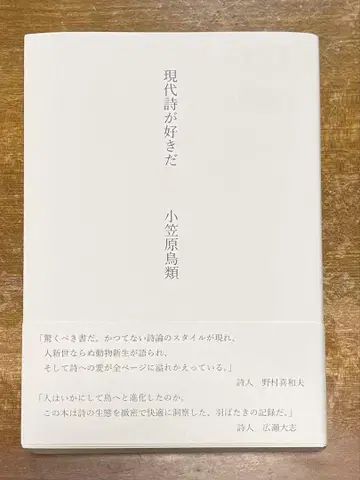 現代詩が好きだ
小笠原鳥類
「驚くべき書だ。かつてない詩論のスタイルが現れ、
人新世ならぬ動物新生が語られ、
そして詩への愛が全ページに溢れかえっている。」
詩人 野村喜和夫
「人はいかにして鳥へと進化したのか。
この本は詩の生態を微密で快適に洞察した、羽ばたきの記録だ。」
詩人 広瀬大志